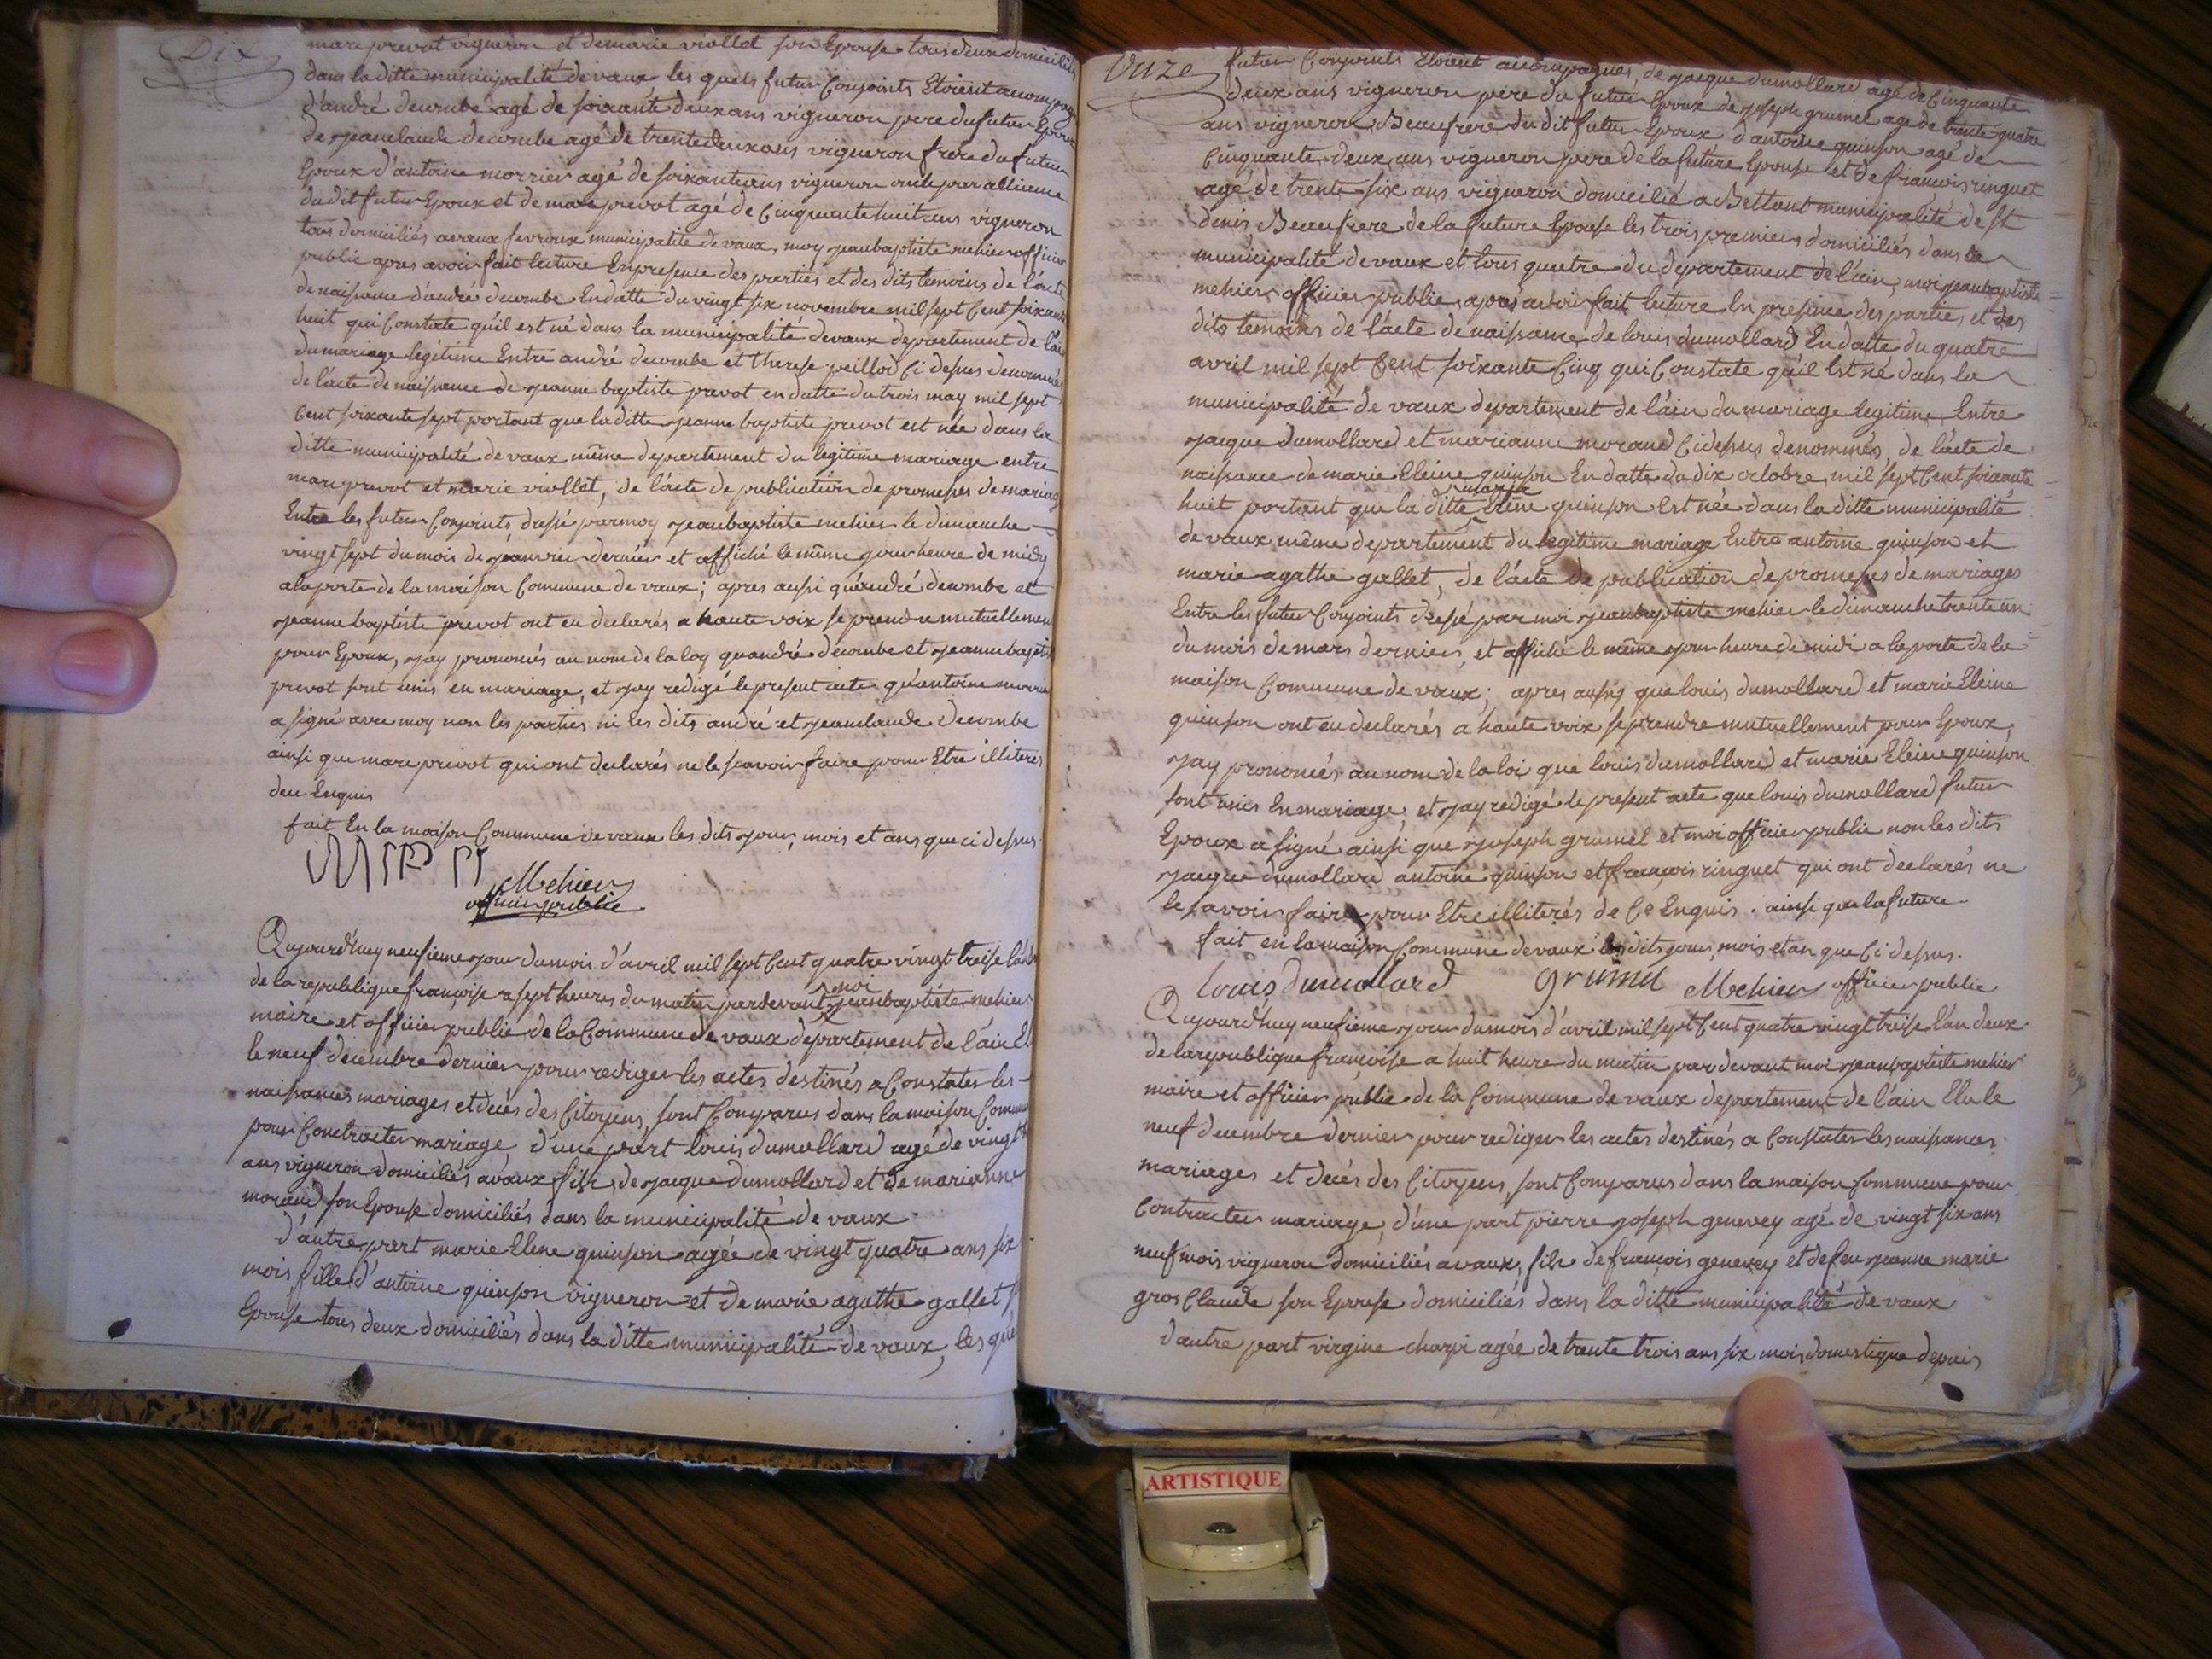 Dix
marc prevot vigneron et de marie viollet son Epouse tous deux domiciliés
dans la ditte municipalité de vaux les quels futur Conjoints Etoient acompag
d'andré decombe agé de soixante deux ans vigneron pere du futur Epoux
de jeanclaude decombe agé de trente deux ans vigneron frere du futur
Epoux d'antoine morrier agé de soixante ans vigneron oncle par alliance
du dit futur Epoux et de marc prevot agé de Cinquante huit ans vigneron
tous domiciliés a vaux fevroux municipalité de vaux, moy jeanbaptiste mehier officier
public apres avoir fait lecture En presence des parties et des dits temoins de l'acte
de naissance d'andré decombe En datte du vingt six novembre mil sept Cent soixante
huit qui Constate qu'il est né dans la municipalité de vaux departement de l'ain
du mariage legitime Entre andré decombe et therese peillod Ci dessus denommés
de l'acte de naissance de jeanne baptiste prevot en datte du trois may mil sept
Cent soixante sept portant que la ditte jeanne baptiste prevot est née dans la
ditte municipalité de vaux même departement du legitime mariage entre
marc prevot et marie viollet, de l'acte de publication de promesses de mariag
Entre les futur Conjoints dressé par moy jeanbaptiste mehier le dimanche
vingt sept du mois de janvier dernier et affiché le même jour heure de midy
a la porte de la maison Commune de vaux; apres aussi qu'andré decombe et
jeanne baptiste prevot ont eu declarés a haute voix se prendre mutuellement
pour Epoux, j'ay prononcés au nom de la loy qu'andré decombe et jeanne baptis
prevot sont unis en mariage, et j'ay redigé le present acte qu'antoine morrier
a signé avec moy non les parties ni les dits andré et jeanclaude decombe
ainsi que marc prevot qui ont declarés ne le scavoir faire pour Etre illiterés
deu Enquis
fait En la maison Commune de vaux les dits jour, mois et ans que ci dessus
Mehier
officier public
Aujourd'huy neufieme jour du mois d'avril mil sept Cent quatre vingt treise l'an
de la republique françoise a sept heures du matin pardevant moi jeanbaptiste mehier
maire et officier public de la Commune de vaux departement de l'ain El
le neuf decembre dernier pour rediger les actes destinés a Constater les
naissances mariages et decés des Citoyens, sont Comparus dans la maison Commun
pour Conctracter mariage, d'une part louis dumollard agé de vingt
ans vigneron domiciliés a vaux fils de jacque dumollard et de marianne
morand son Epouse domiciliés dans la municipalité de vaux
d'autre part marie Elene quinson agée de vingt quatre ans six
mois, fille d'antoine quinson vigneron et de marie agathe gallet s
Epouse tous deux domiciliés dans la ditte municipalité de vaux, les que
Unze
futur Conjoints Etoient accompagnés, de jacque dumollard agé de Cinquante
deux ans vigneron pere du futur Epoux de joseph grumel agé de trente quatre
ans vigneron Beaufrere du dit futur Epoux d'antoine quinson agé de
Cinquante deux ans vigneron pere de la future Epouse et de francois ringuet
agé de trente six ans vigneron domicilié a Bettant municipalité de st
denis Beaufrere de la future Epouse les trois premiers domiciliés dans la
municipalité de vaux et tous quatre du departement de l'ain, moi jeanbaptiste
mehier officier public, apres avoir fait lecture En presence des parties et des
dits temoins de l'acte de naissance de louis dumollard En datte du quatre
avril mil sept Cent soixante Cinq qui Constate qu'il Est né dans la
municipalité de vaux departement de l'ain du mariage legitime Entre
jacque dumollard et marianne morand Ci dessus denommés, de l'acte de
naissance de marie Eleine quinson En datte du dix octobre mil sept Cent soixante
huit portant que la ditte marie Eleine quinson Est née dans la ditte municipalité
de vaux même departement du legitime mariage Entre antoine quinson et
marie agathe gallet, de l'acte de publication de promesses de mariages
Entre les futur Conjoints dressé par moi jeanbaptiste mehier le dimanche trente un
du mois de mars dernier, et affiché le même jour heure de midi a la porte de la
maison Commune de vaux; apres aussy que louis dumollard et marie Eleine
quinson ont eu declarés a haute voix se prendre mutuellement pour Epoux,
j'ay prononcés au nom de la loi que louis dumollard et marie Eleine quinson
sont unis En mariage, et j'ay redigé le present acte que louis dumollard futur
Epoux a signé ainsi que joseph grumel et moi officier public non les dits
jacque dumollard antoine quinson et françois ringuet qui ont declarés ne
le savoir faire pour Etre illiterés de Ce Enquis. ainsi que la future
fait en la maison Commune de vaux les dits jour, mois et an que Ci dessus.
louis dumollard grumel Mehier officier public
Aujourd'huy neufieme jour du mois d'avril mil sept Cent quatre vingt treise l'an deux
de la republique françoise a huit heure du matin par devant moi jeanbaptiste mehier
maire et officier public de la Commune de vaux departement de l'ain Elu le
neuf decembre dernier pour rediger les actes destinés a Constater les naissances
mariages et decés des Citoyens, sont Comparus dans la maison Commune pour
Contracter mariage, d'une part pierre joseph genevey agé de vingt six ans
neuf mois vigneron domiciliés a vaux, fils de françois genevey et de feu jeanne marie
gros Claude son Epouse domiciliés dans la ditte municipalité de vaux
d'autre part virgine charpi agée de trente trois ans six mois domestique depuis
ARTISTIQUE